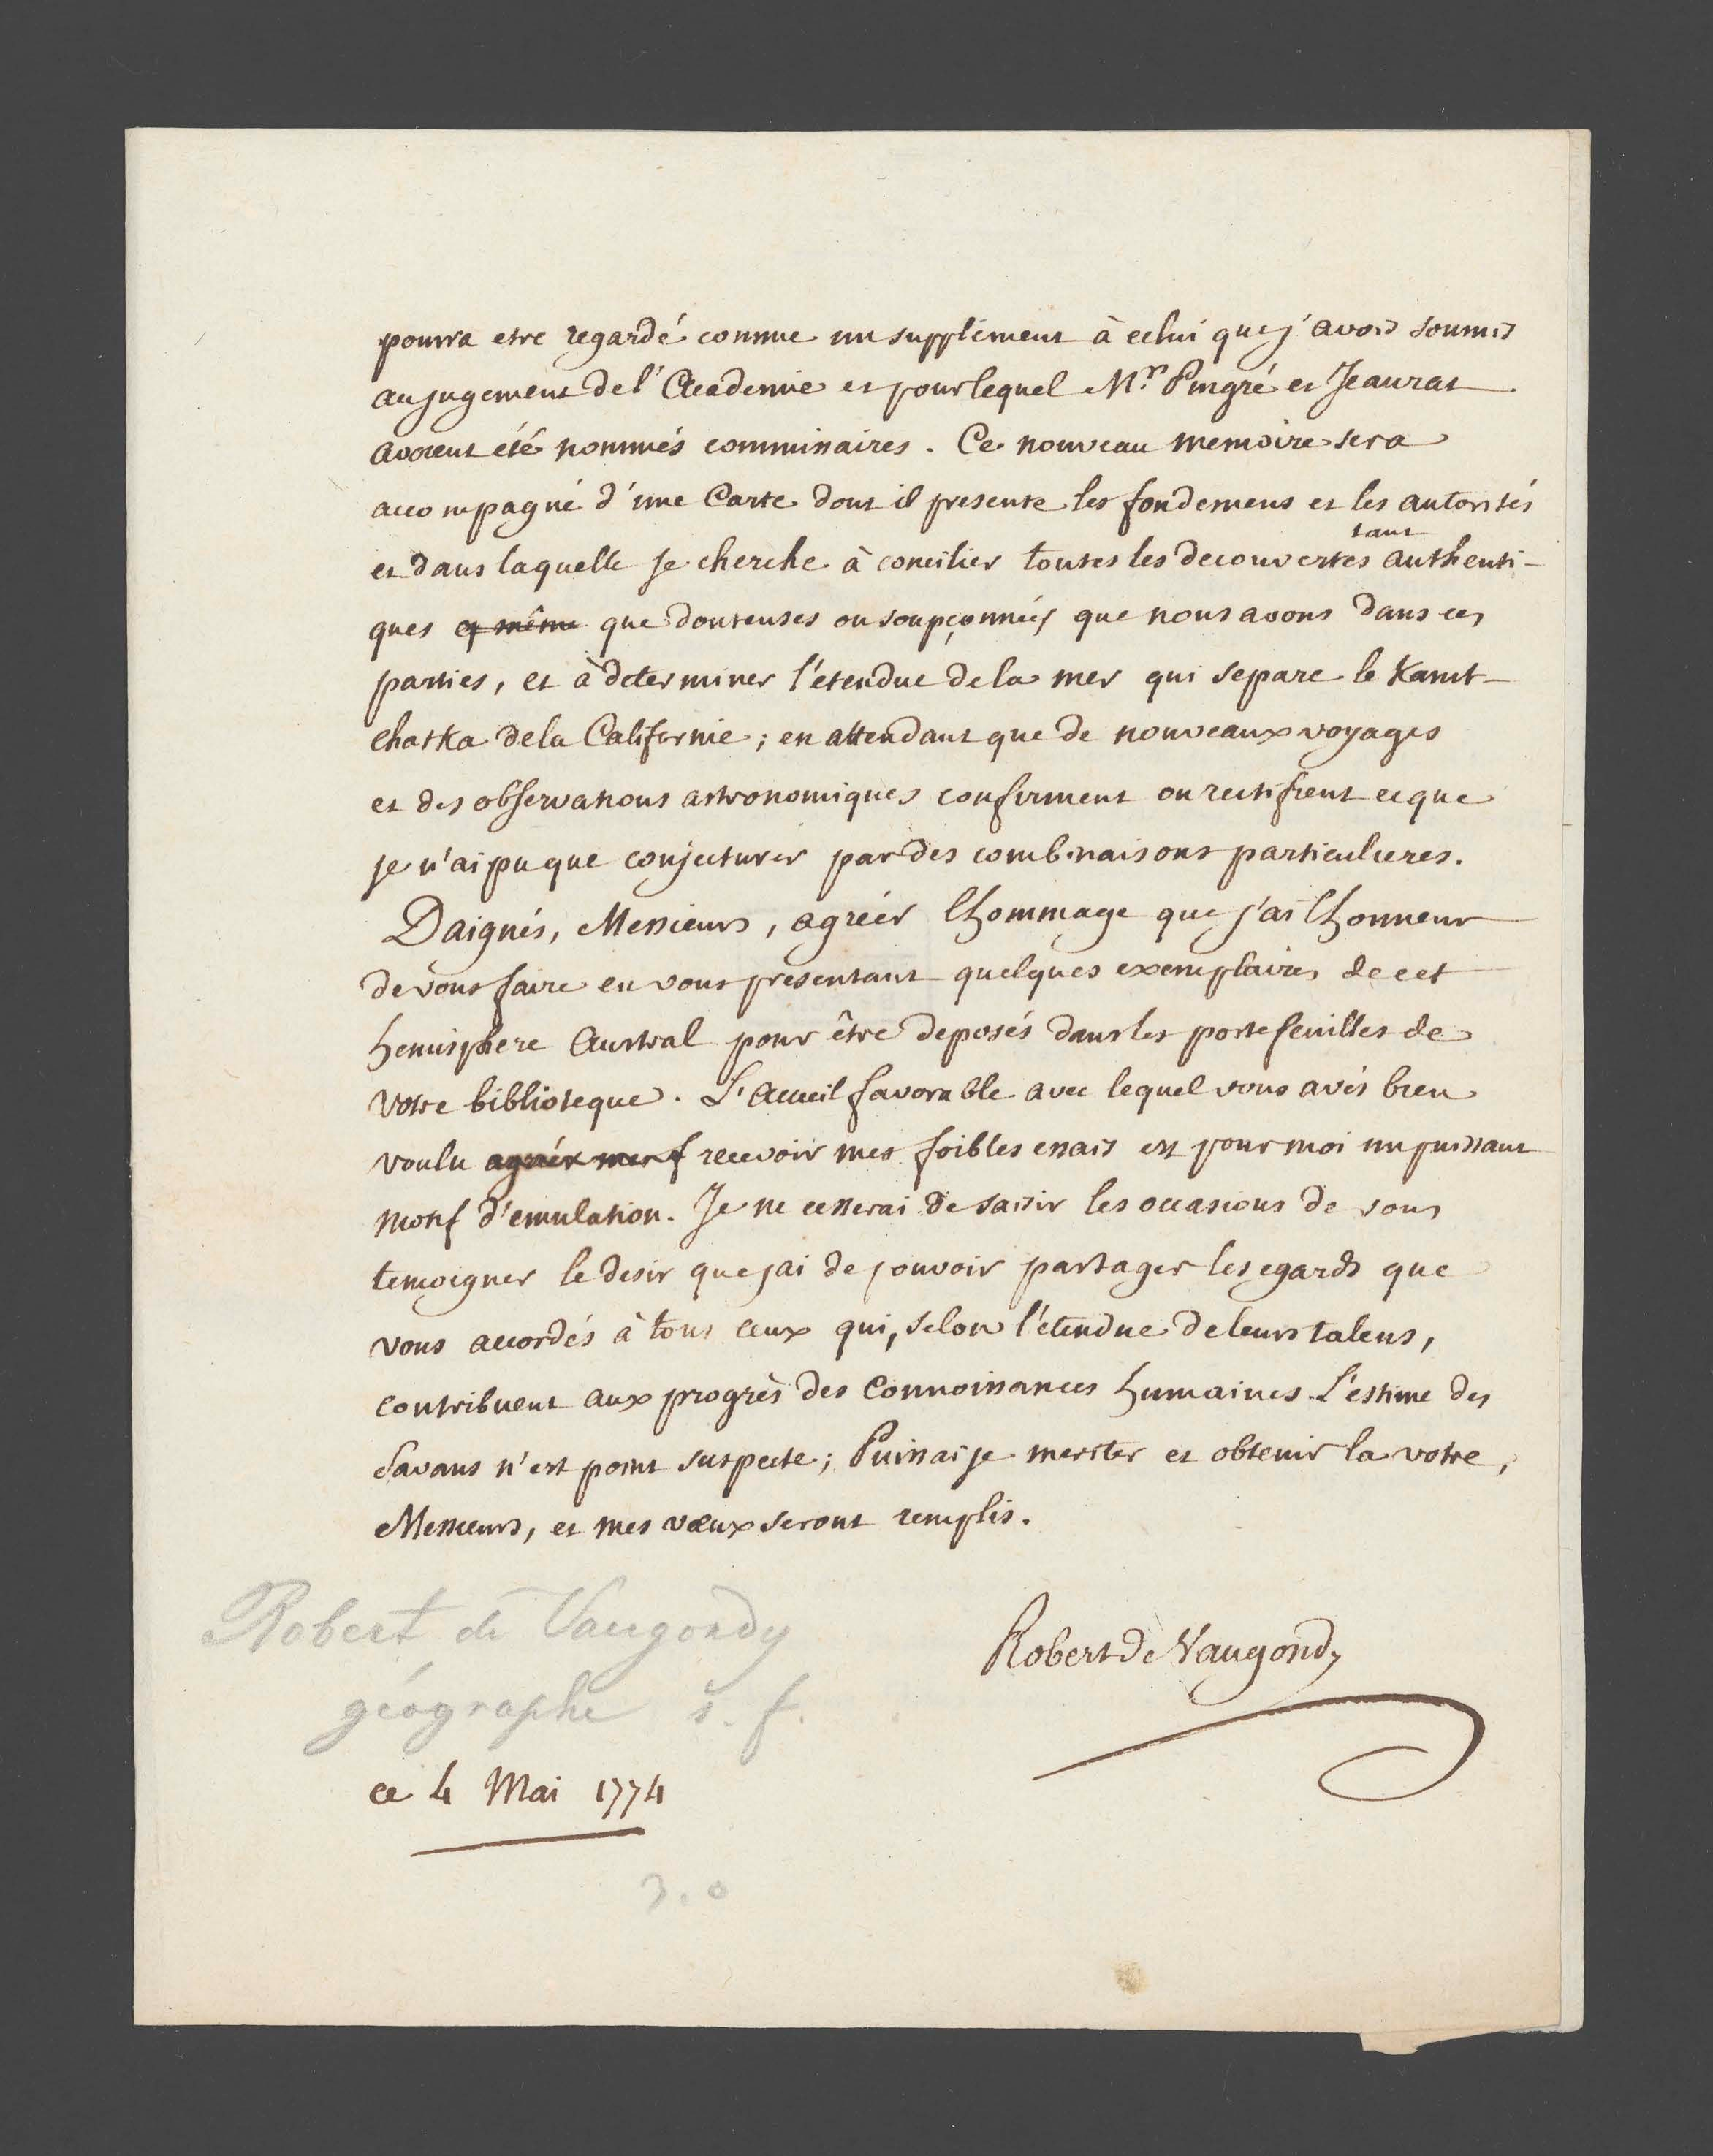 pourra etre regardé comme un supplément à celui que j'avois soumis
au jugement de l'Academie et pour lequel M.rs Pingré et Jeaurat
avoient été nommés commissaires. Ce nouveau memoire sera
accompagné d'une Carte dont il presente les fondemens et les autorités
tant
et dans laquelle je cherche à concilier toutes les decouvertes authenti-
ques et même que douteuses ou soupçonnées que nous avons dans ces
parties, et à determiner l'étendue de la mer qui separe le Kamt-
chatka de la Californie; en attendant que de nouveaux voyages
et des observations astronomiques confirment ou rectifient ce que
je n'ai pu que conjecturer par des combinaisons particulieres.
Daignés, Messieurs, agréer l'hommage que j'ai l'honneur
de vous faire en vous presentant quelques exemplaires de cet
hemisphere Austral pour être deposés dans les portefeuilles de
votre biblioteque. L'accueil favorable avec lequel vous avés bien
voulu agréer mes recevoir mes foibles essais est pour moi un puissant
motif d'emulation. Je ne cesserai de saisir les occasions de vous
temoigner le desir que j'ai de pouvoir partager les egards que
vous accordés à tous ceux qui, selon l'étendue de leurs talens,
contribuent aux progrès des Connoissances humaines. L'estime des
Savans n'est point suspecte; Puissai je meriter et obtenir la votre,
Messieurs, et mes vœux seront remplis.
Robert de Vaugondy
Robert de Vaugondy
géographe s. f.
ce 4 Mai 1774
3.0